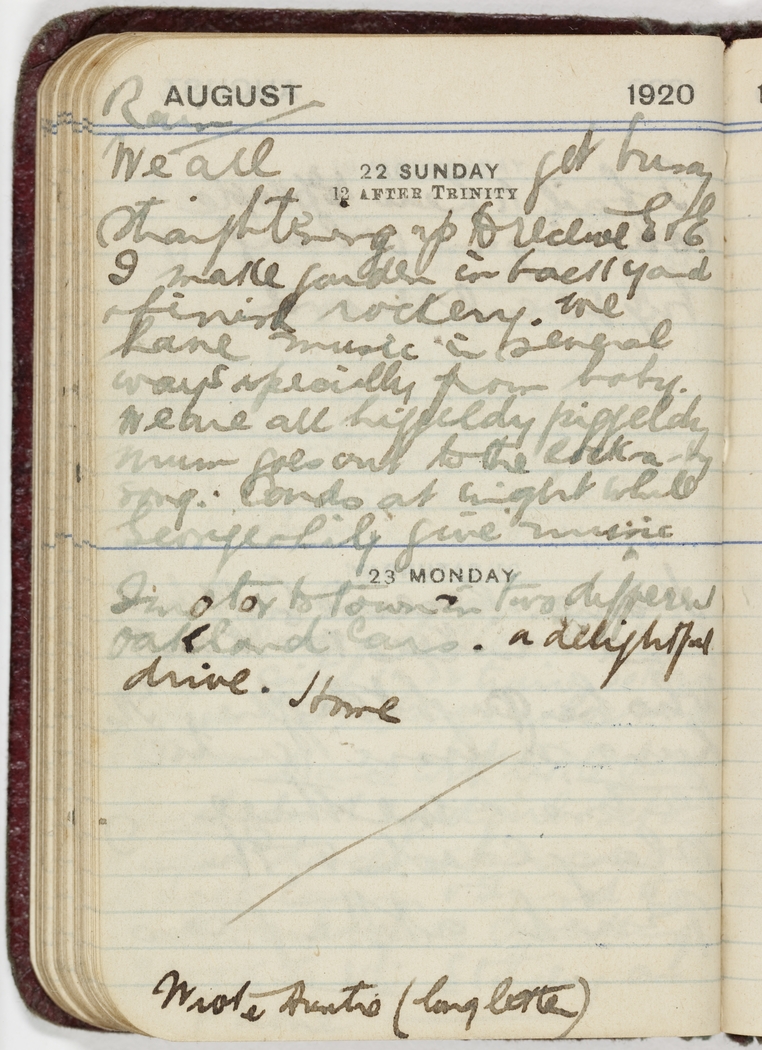 AUGUST 1920
Rain
We all get busy
22 SUNDAY
12 AFTER TRINITY
straightening up to receive E & E
I make garden in back yard
& finish rockery. We
have music in several
ways specially from baby.
We are all higgeldy piggeldy
mum goes out to the
song. Cards at night while
George & Lily give music
23 MONDAY
I motor to town in two different
Oakland Cars. a delightful
drive. Home
Wrote Auntie (long letter)